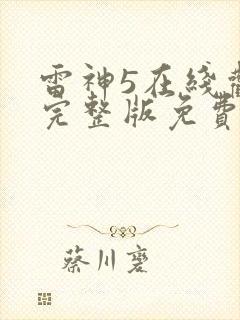 雷神5在线
完整版免費
蔡川褒